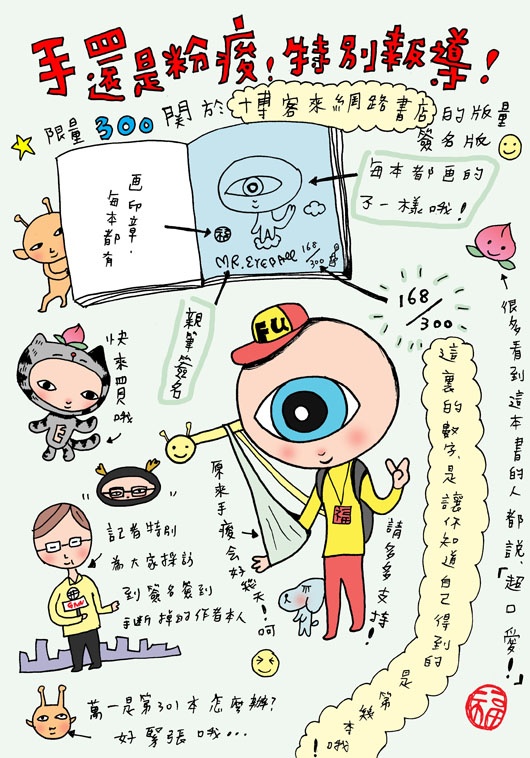 手還是粉痠！特別報導！
限量300 關於博客來網路書店的版量
簽名版
每本都画的
不一樣哦！
画印章.
每本都有
福
MR. EYEBALL 168/300
168/300
親筆簽名
FU
快來買哦
很多看到這本書的人都說,「超口愛！」
這裏的數字是讓你知道自己得到的
是第幾本哦！
原來手痠會好幾天！呵
福
請多多支持！
記者特別
為大家採訪
到簽名簽到
手斷掉的作者本人
萬一是第301本怎麼辦？
好緊張哦...
福